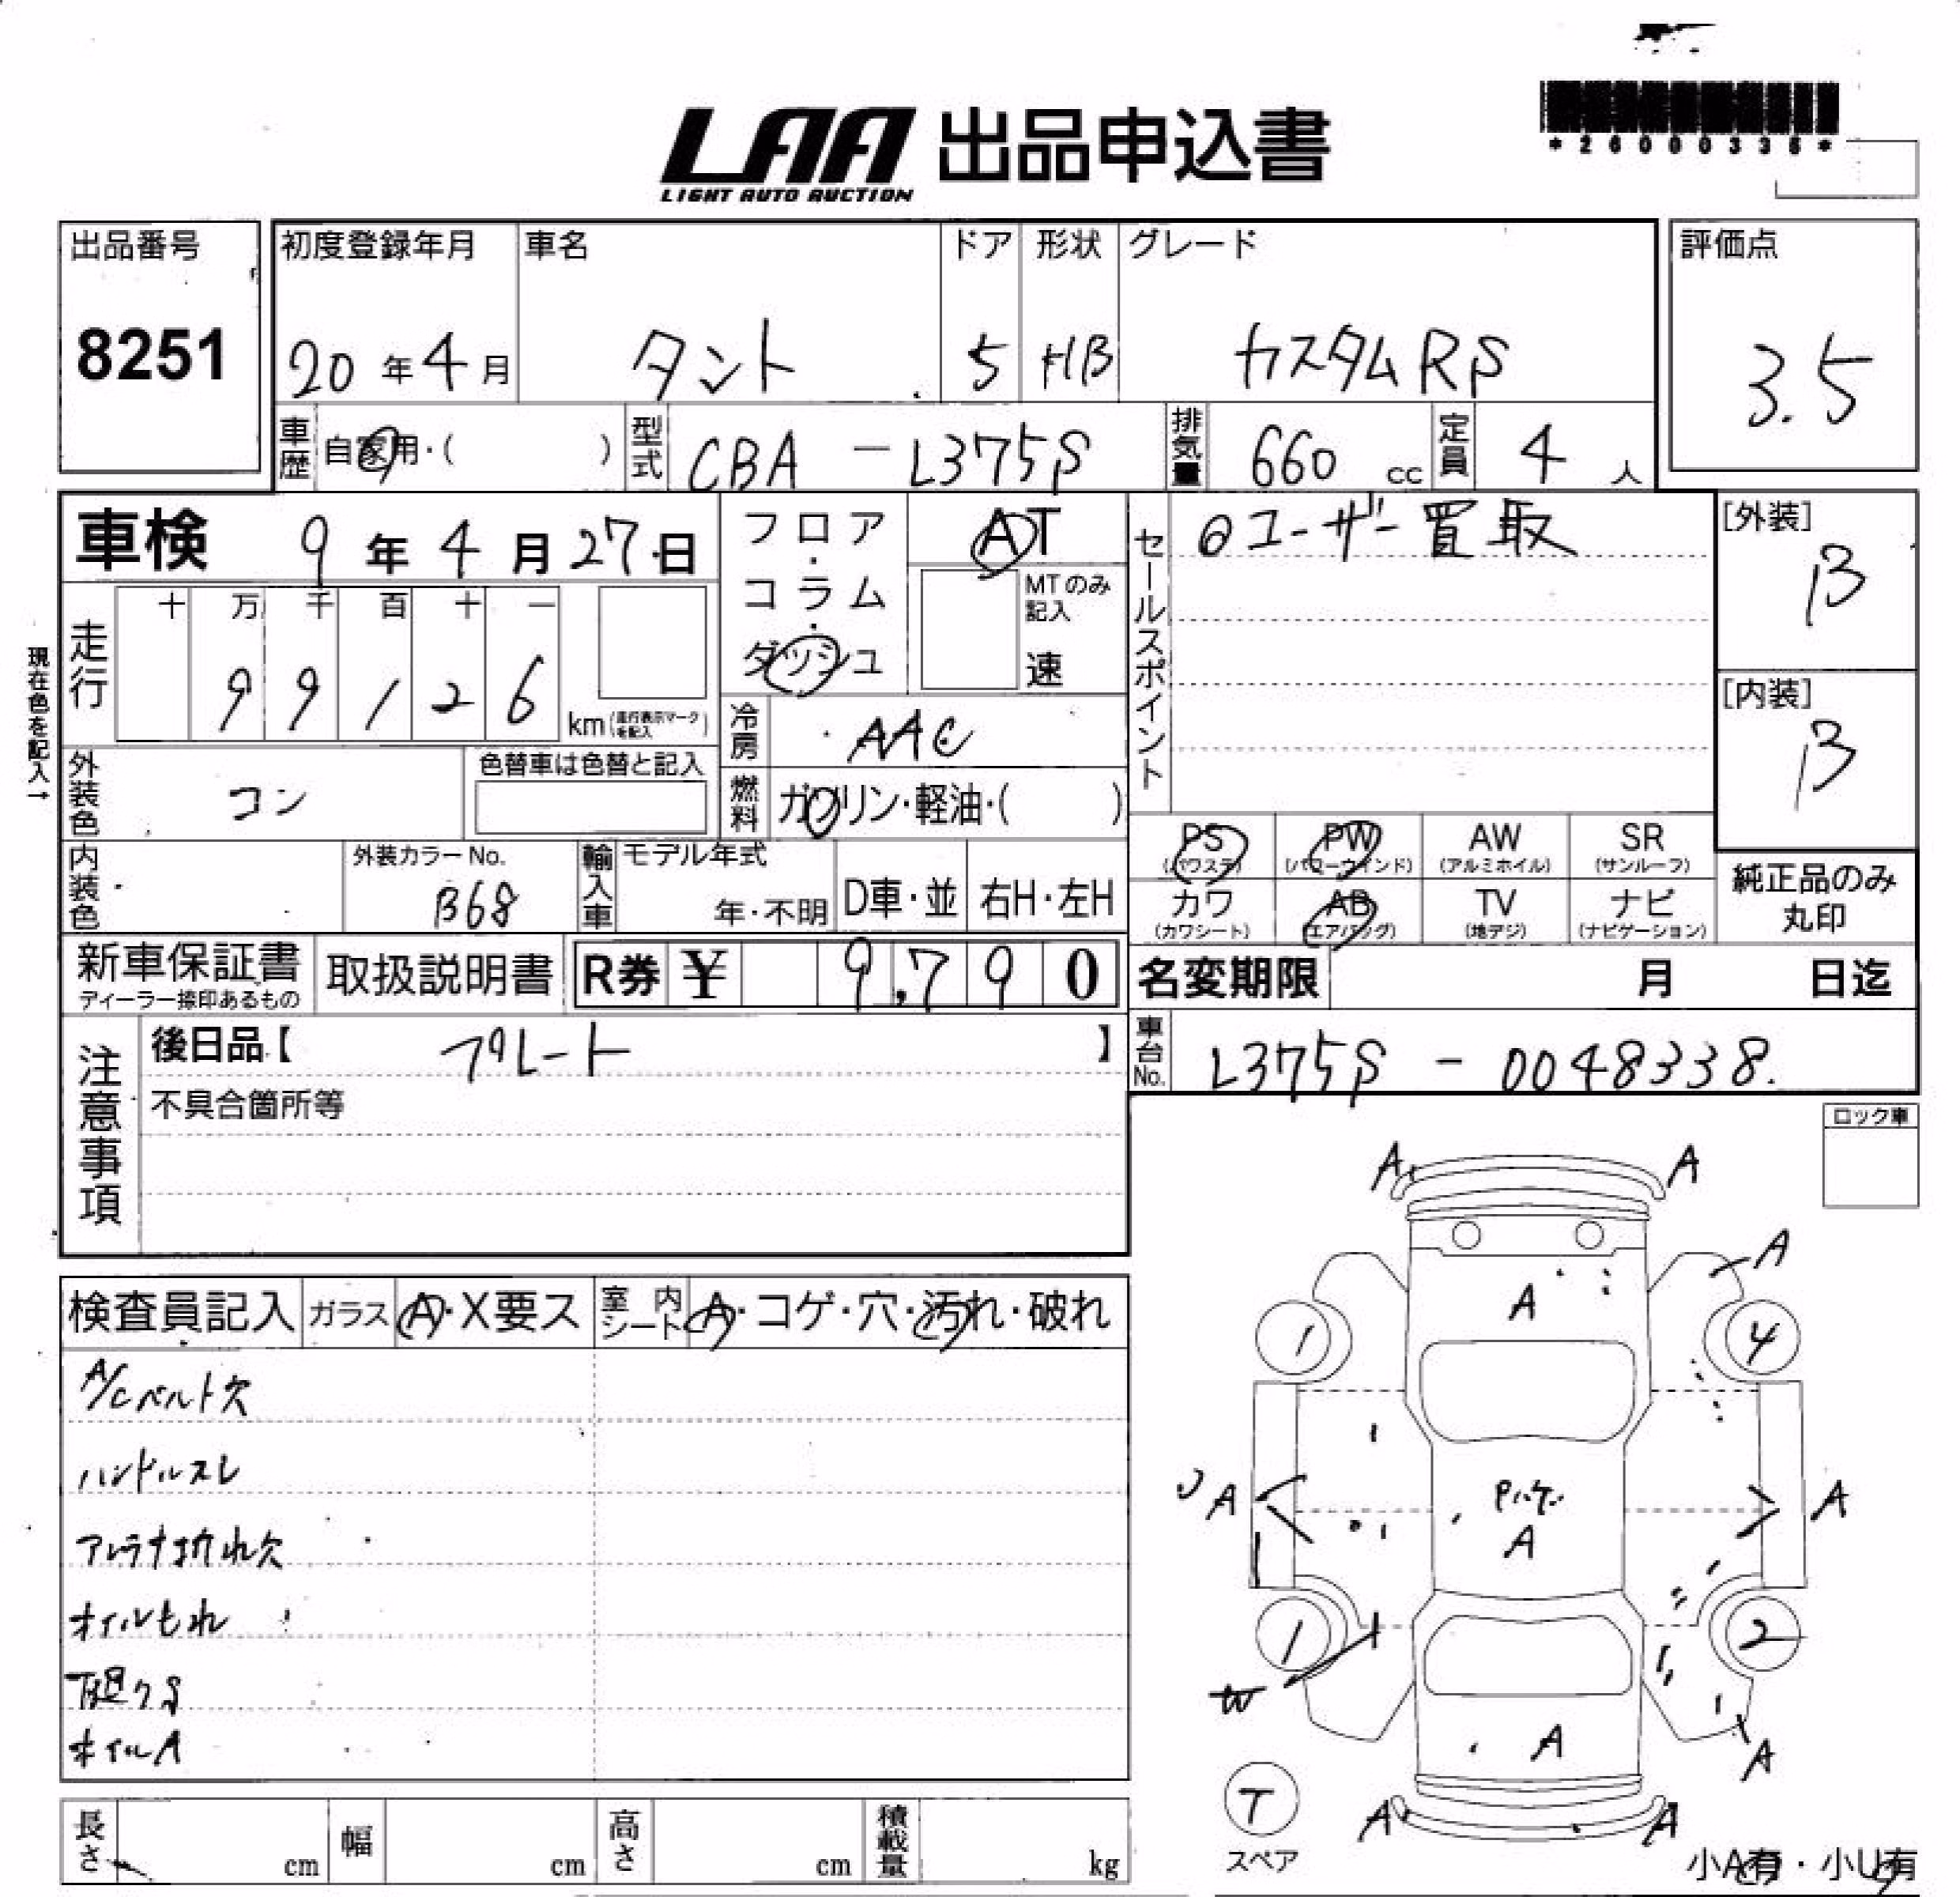 *26000336*
LAA 出品申込書
LIGHT AUTO AUCTION
出品番号
8251
初度登録年月 車名 ドア 形状 グレード
20年4月 タント 5 HB カスタムRS
評価点
3.5
車歴 自家用・( ) 型式 CBA-L375S 排気量 660 cc 定員 4 人
車検 9年4月27日
フロア・コラム・ダッシュ
AT
MTのみ記入
速
セールスポイント
◎ユーザー買取
[外装]
B
[内装]
B
現在色を記入→
走行 十 万 千 百 十 一
9 9 1 2 6 km(走行表示マークを記入)
冷房 AAC
外装色 コン 色替車は色替と記入
燃料 ガソリン・軽油・( )
PS PW AW SR
(パワステ) (パワーウインド) (アルミホイル) (サンルーフ)
カワ AB TV ナビ
(カワシート) (エアバッグ) (地デジ) (ナビゲーション)
純正品のみ
丸印
内装色 外装カラーNo. B68
輸入車 モデル年式 年・不明 D車・並 右H・左H
新車保証書 取扱説明書 R券 ¥ 9,790
ディーラー捺印あるもの
名変期限 月 日迄
注意事項
後日品【 プレート 】
不具合箇所等
車台No. L375S-0048338
ロック車
検査員記入 ガラス A・X要ス 室内シート A・コゲ・穴・汚れ・破れ
A/Cベルト欠
ハンドルスレ
アンテナ折れ欠
オイルもれ
下廻りS
ホイルA
A A
A
A
1 4
A A
Pハゲ
A
1 2
W
A
A
T
スペア
A A
小A有・小U有
長さ cm 幅 cm 高さ cm 積載量 kg